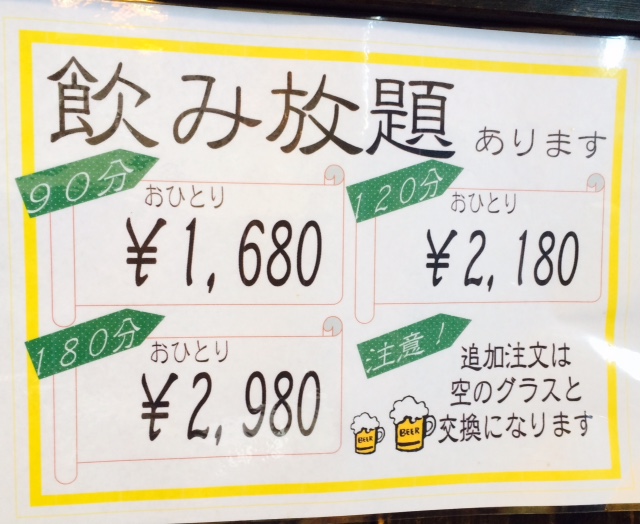 飲み放題 あります
90分
おひとり
¥1,680
120分
おひとり
¥2,180
180分
おひとり
¥2,980
注意!
追加注文は
空のグラスと
交換になります
BEER
BEER